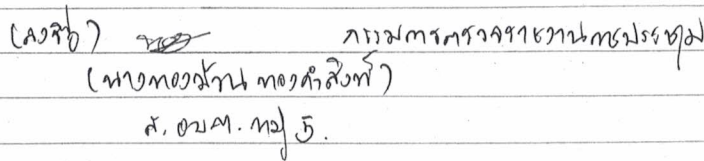 (ลงชื่อ) กรรมการตรวจรายงานการประชุม
(นางทองม้วน ทองคำสิงห์)
ส.อบต. หมู่ 5.